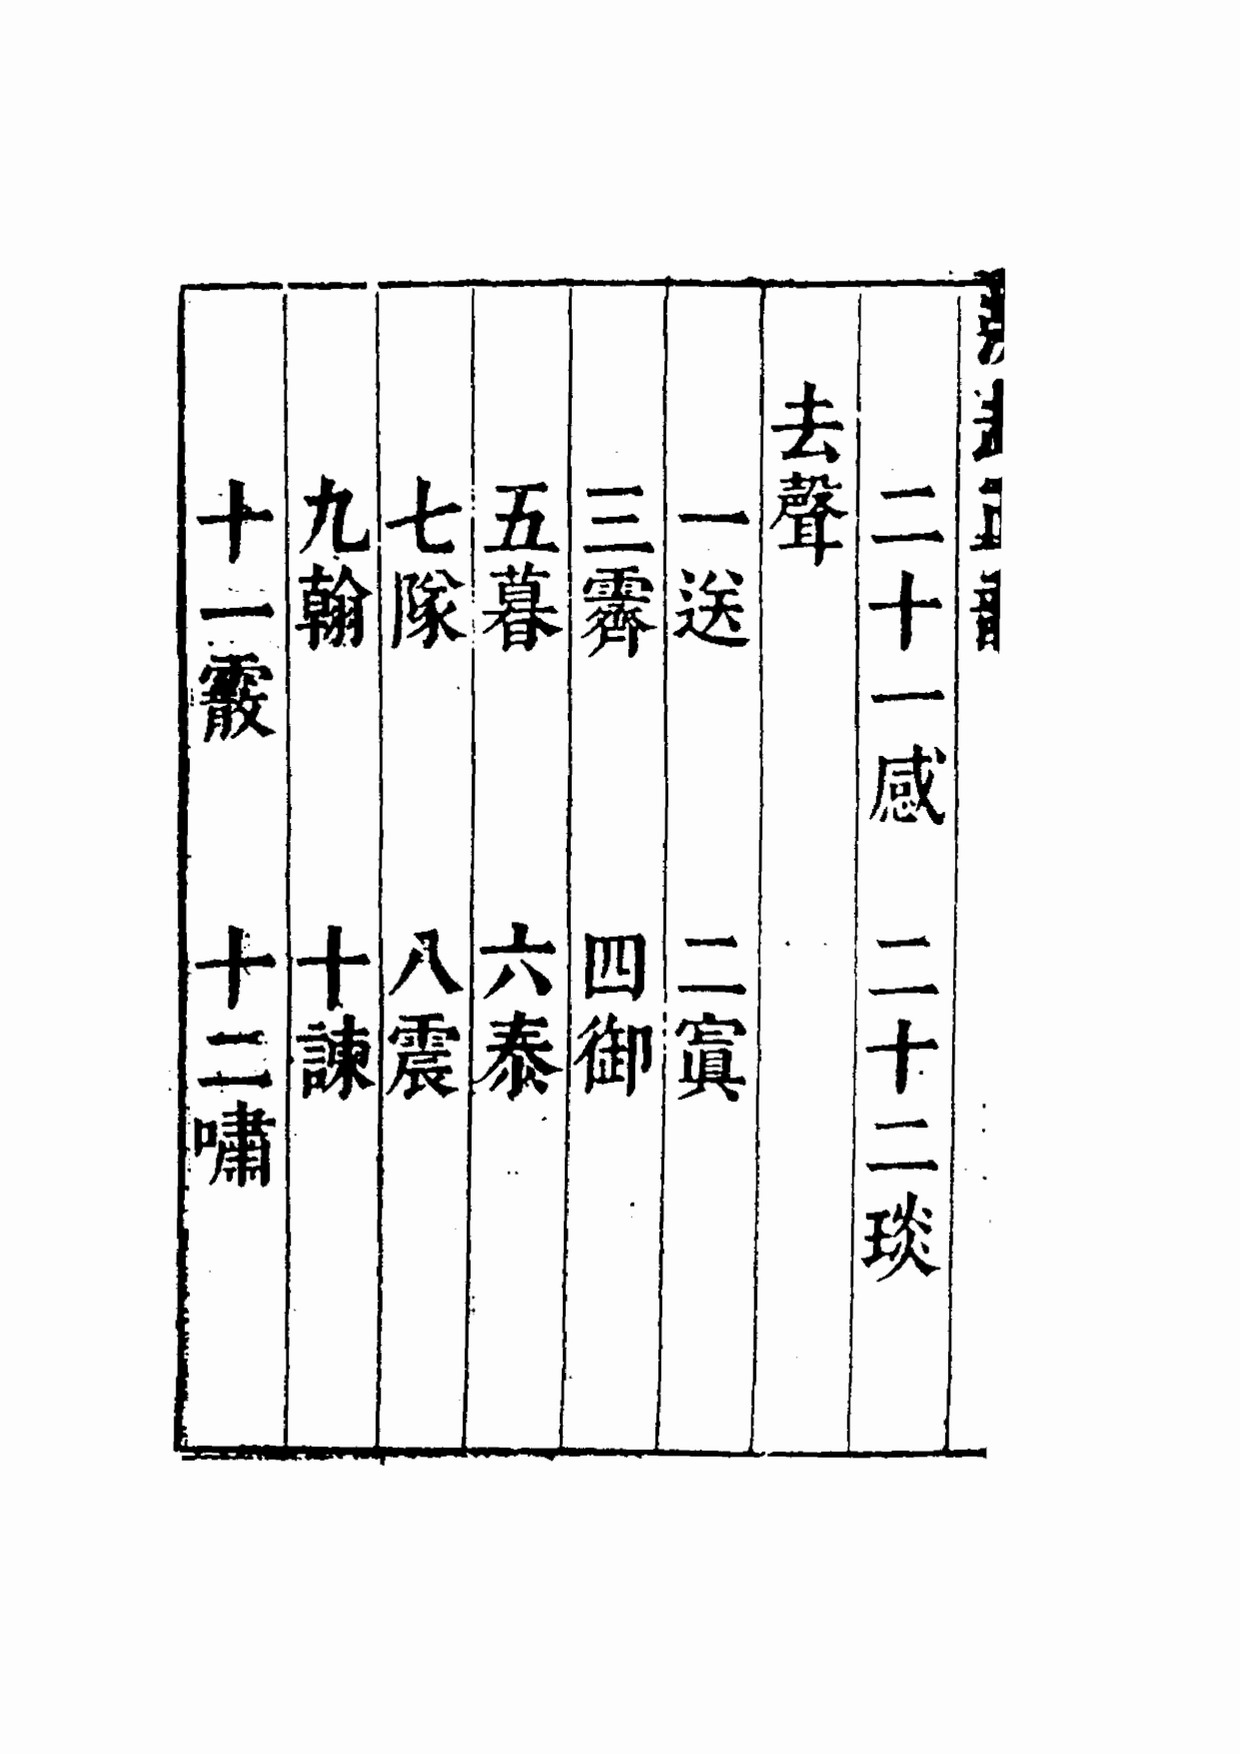 二十一感 二十二琰
去聲
一送 二寘
三霽 四御
五暮 六泰
七隊 八震
九翰 十諫
十一霰 十二嘯